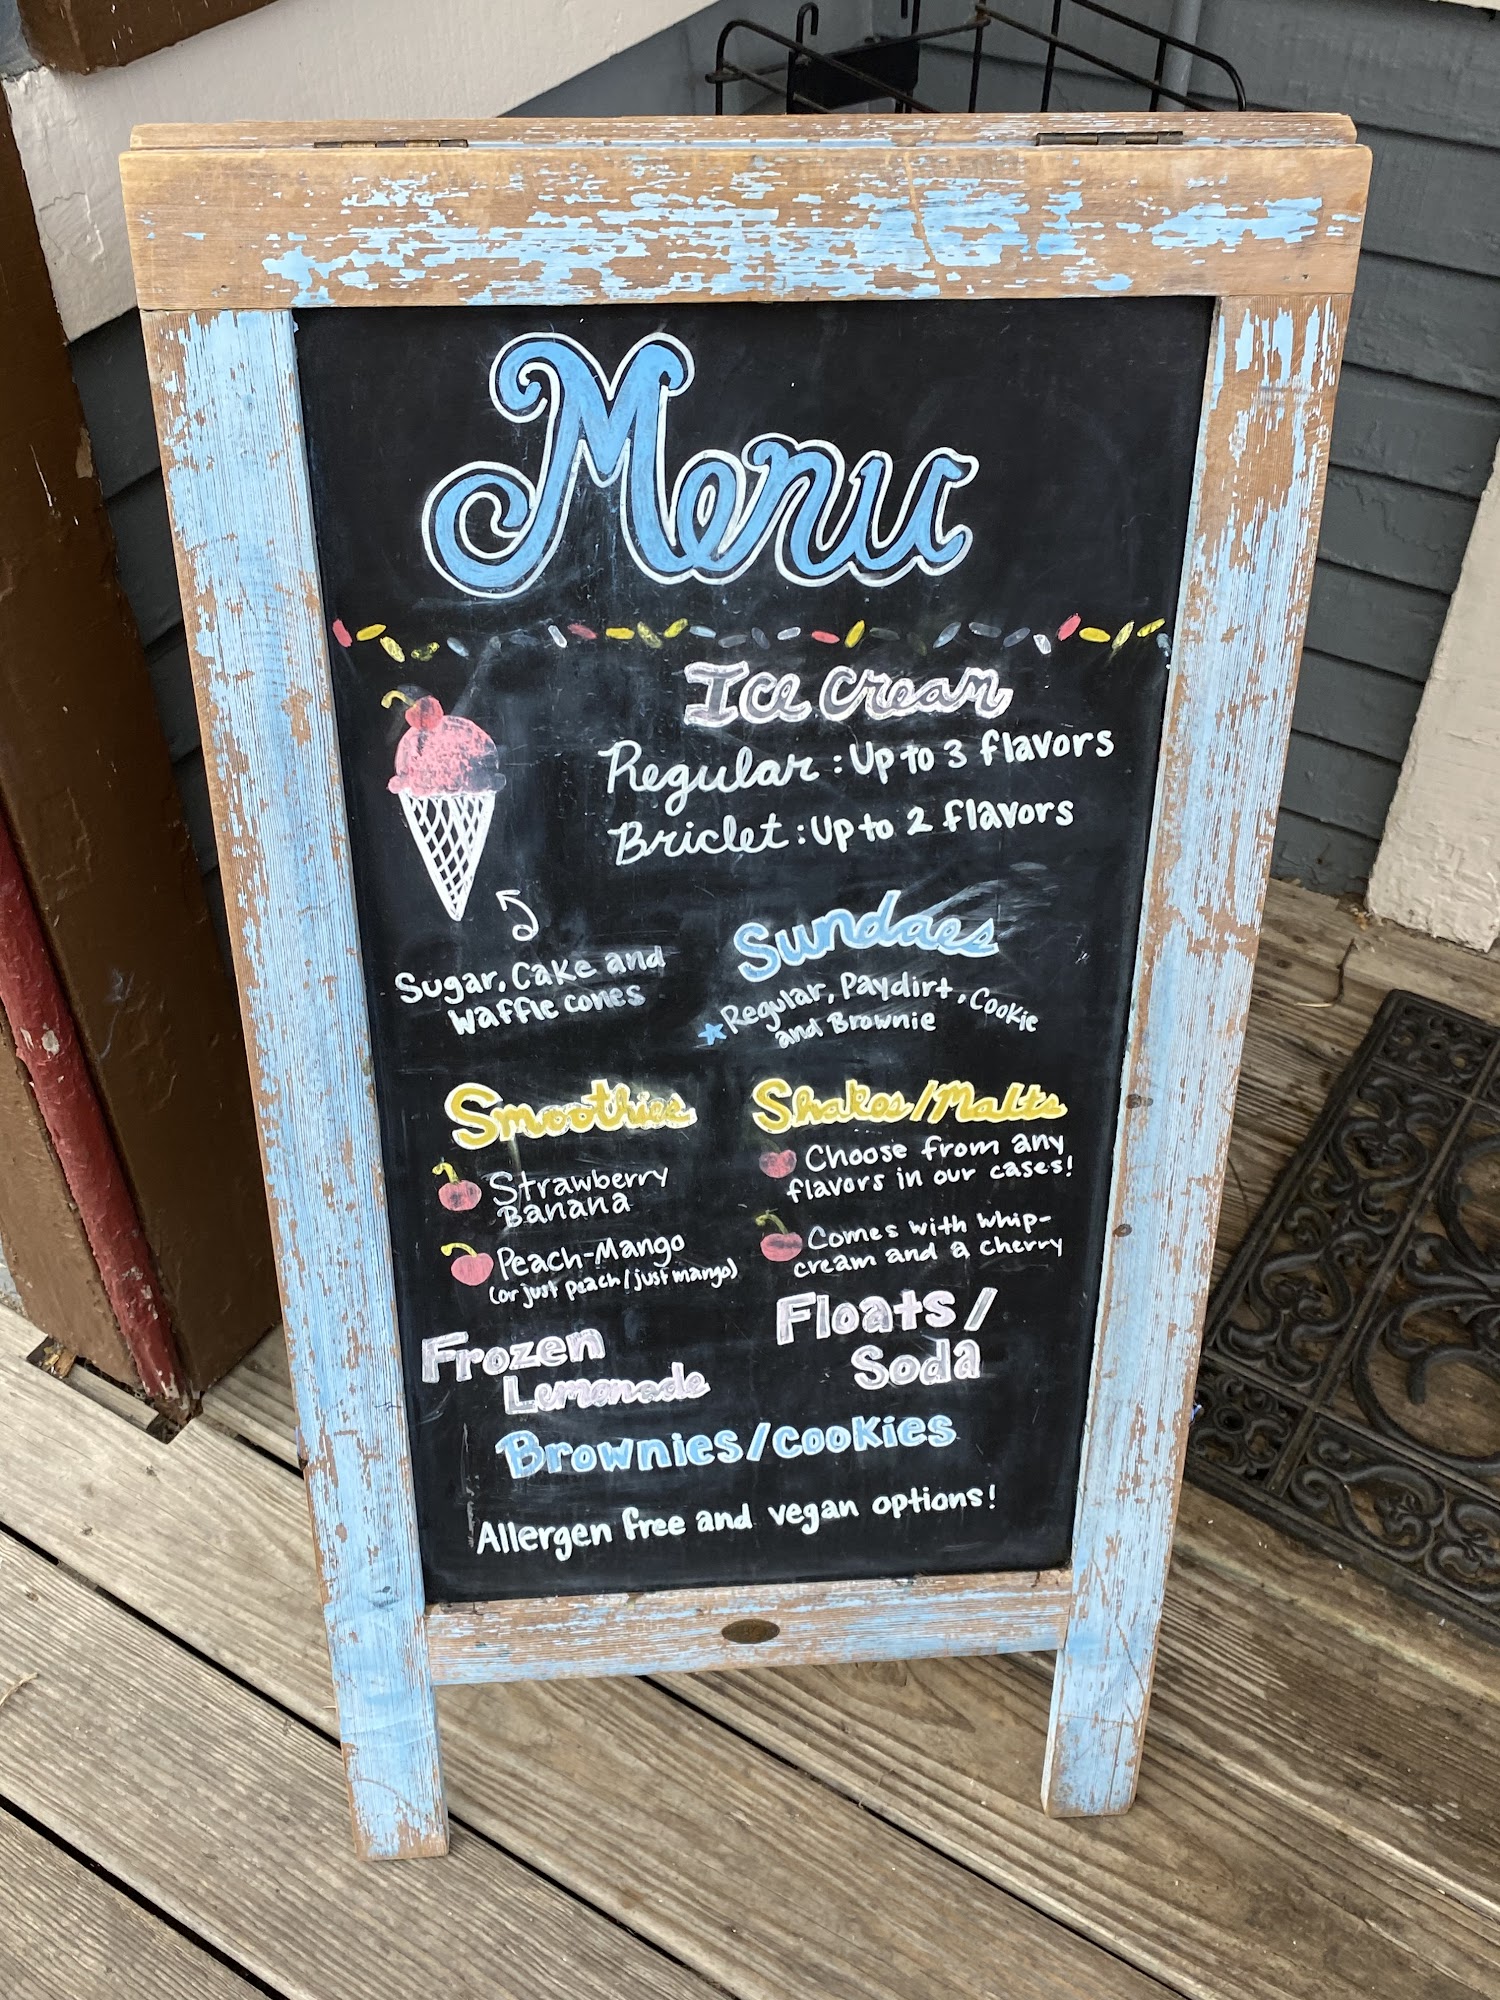 Menu
Ice Cream
Regular: Up to 3 flavors
Briclet: Up to 2 flavors
Sugar, Cake and
Waffle cones
Sundaes
Regular, Paydirt, Cookie
and Brownie
Smoothies
Strawberry
Banana
Peach-Mango
(or just peach/just mango)
Shakes/Malts
Choose from any
flavors in our cases!
Comes with whip-
cream and a cherry
Frozen
Lemonade
Floats/
Soda
Brownies/cookies
Allergen free and vegan options!